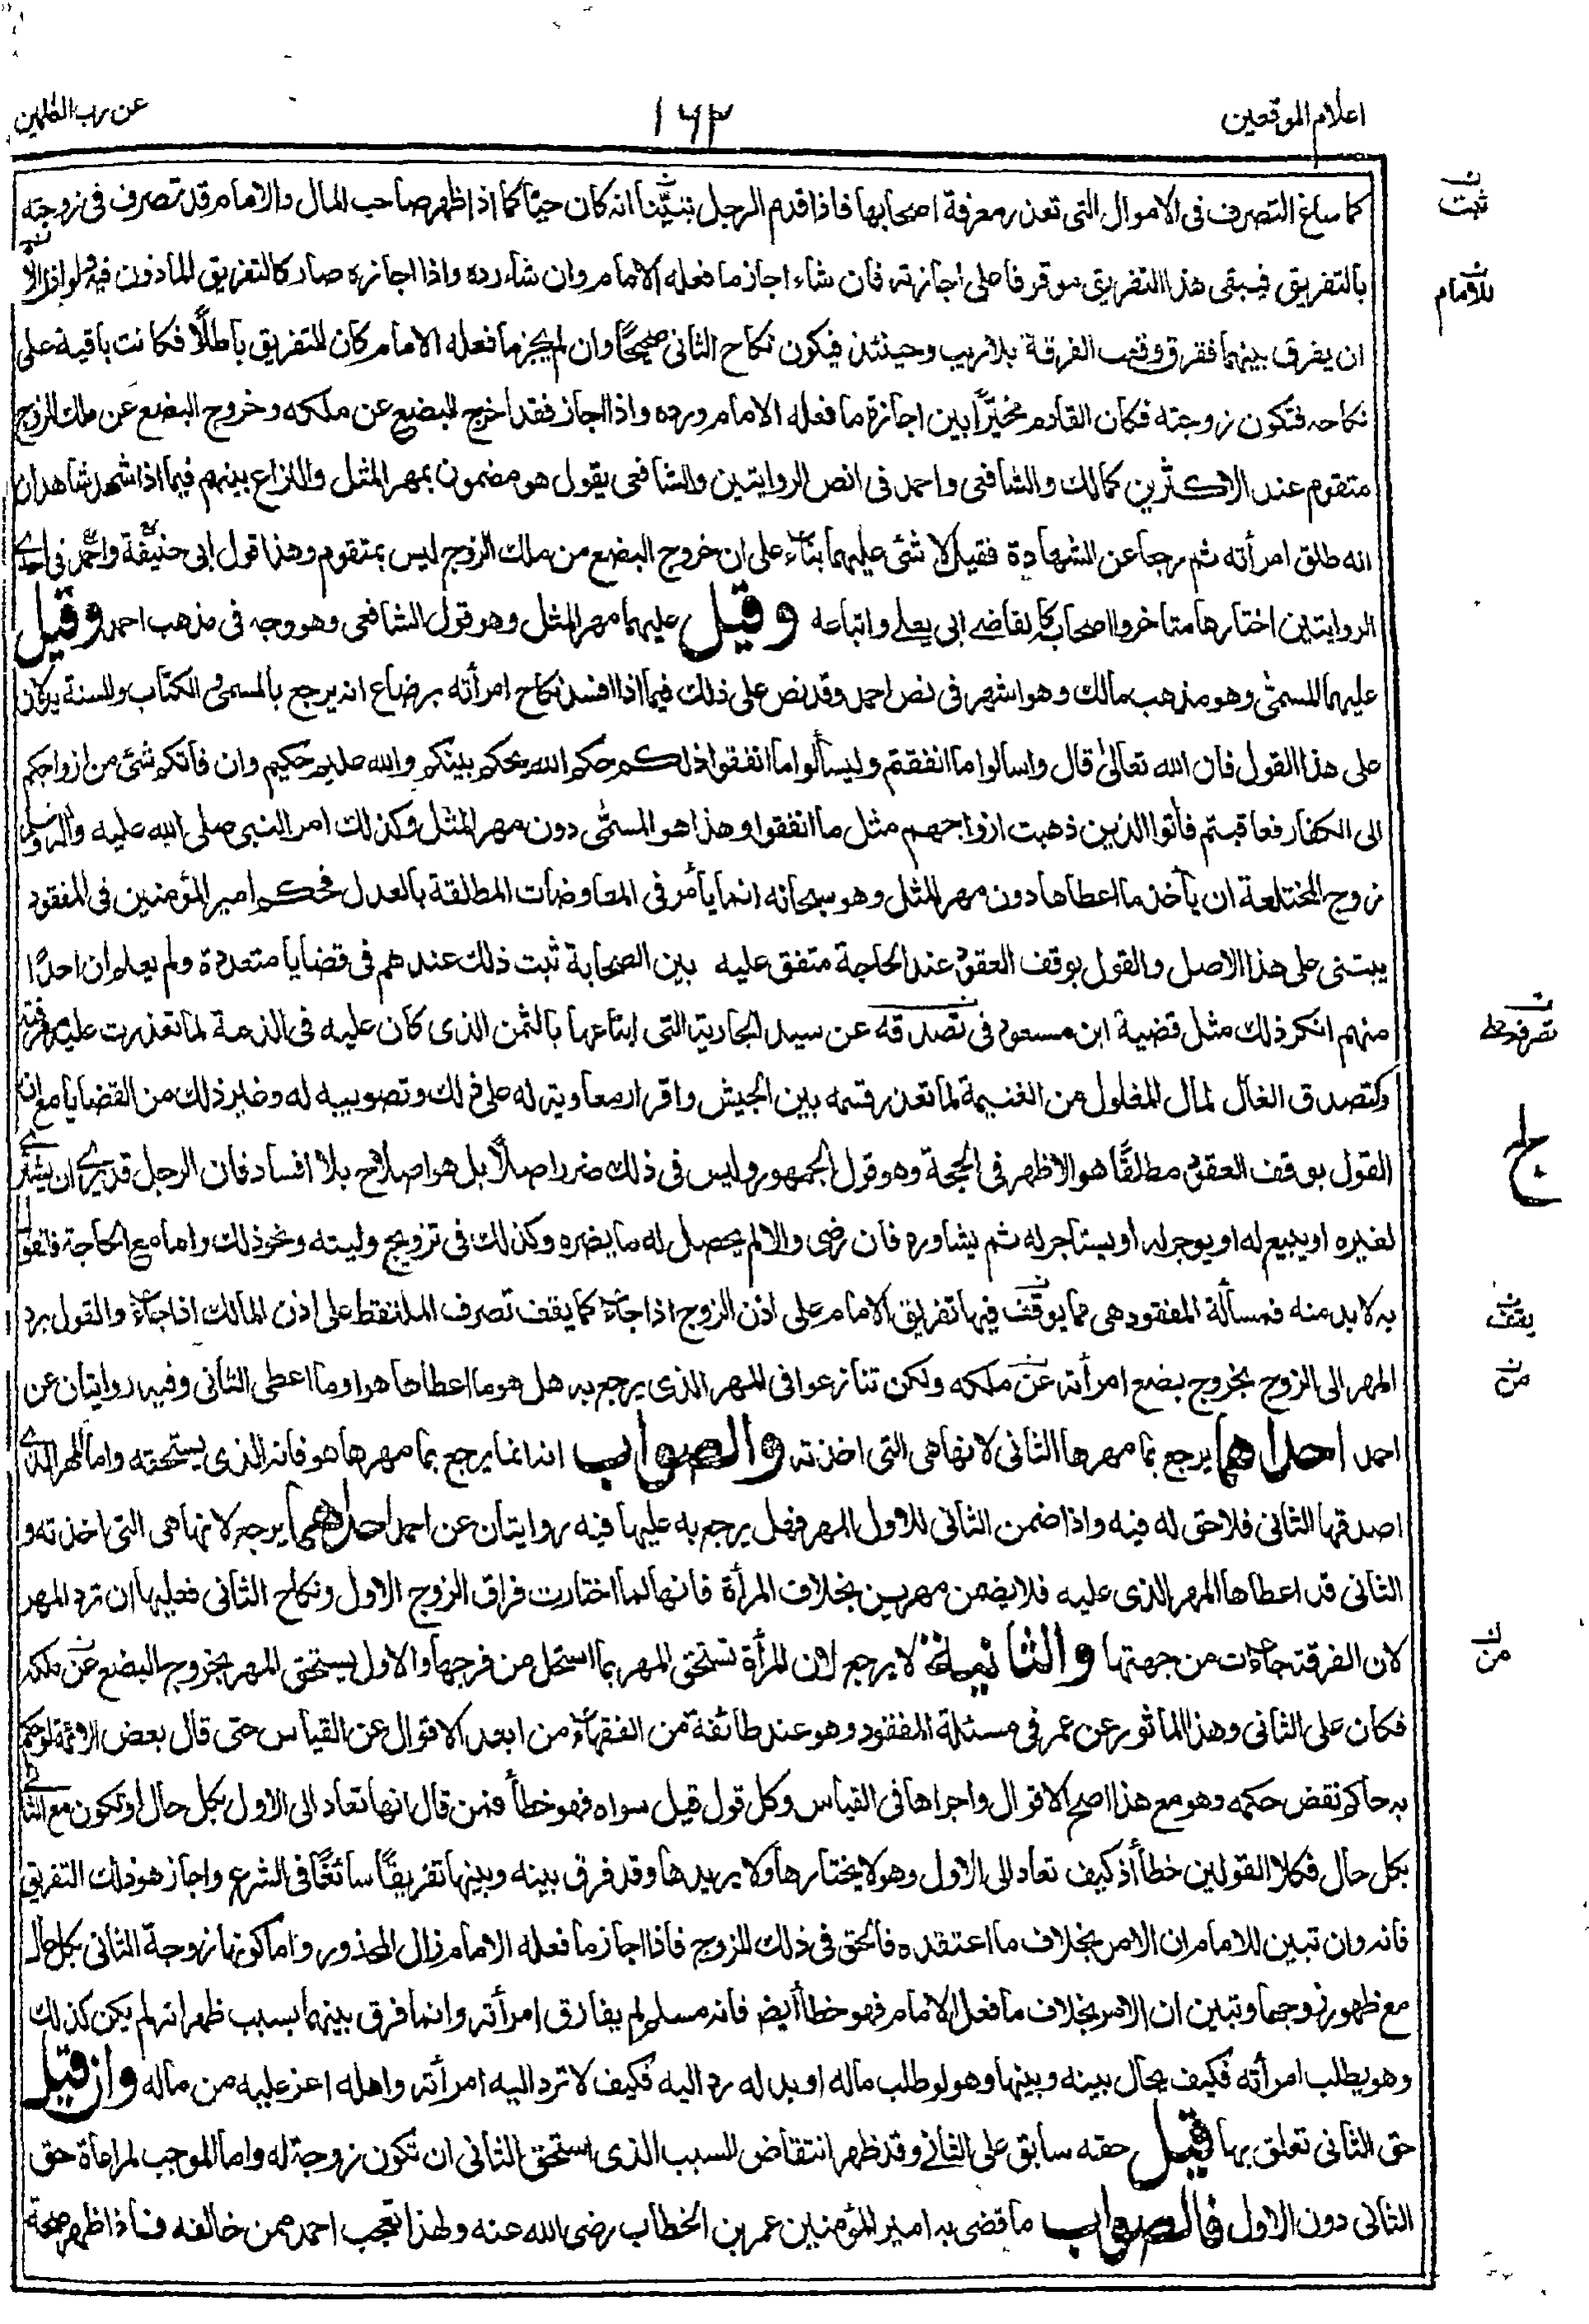 اعلام الموقعين
١٦٣
عن رب العلمين
كما ساغ التصرف فى الاموال التى تعذر معرفة اصحابها فاذا قدم الرجل تبيّنا انه كان حيّا كما اذا ظهر صاحب المال والامام قد تصرف فى زوجته
بالتفريق فيبقى هذا التفريق موقوفا على اجازته فان شاء اجاز ما فعله الامام وان شاء رده واذا اجازه صار كالتفريق الماذون فيه ولو اذن
ان يفرق بينهما ففرق وقعت الفرقة بلا ريب وحينئذ فيكون نكاح الثانى صحيحًا وان لم يجز ما فعله الامام كان التفريق باطلًا فكانت باقية على
نكاحه فتكون زوجته فكان القادم مخيّرًا بين اجازة ما فعله الامام ورده واذا اجاز فقد اخرج البضع عن ملكه وخروج البضع عن ملك الزوج
متقوم عند الاكثرين كمالك والشافعى واحمد فى انص الروايتين والشافعى يقول هو مضمون بمهر المثل والنزاع بينهم فيما اذا شهد شاهدان
انه طلق امرأته ثم رجعا عن الشهادة فقيل لا شئ عليهما بناء على ان خروج البضع من ملك الزوج ليس بمتقوم وهذا قول ابى حنيفة واحمد فى احدى
الروايتين اختارها متاخروا اصحابه كالقاضے ابى يعلے واتباعه وقيل عليهما مهر المثل وهو قول الشافعى وهو وجه فى مذهب احمد وقيل
عليهما المسمّٰى وهو مذهب مالك وهو اشهر فى نص احمد وقد نص على ذلك فيما اذا افسد نكاح امرأته برضاع انه يرجع بالمسمى والكتاب والسنة يدلان
على هذا القول فان الله تعالىٰ قال واسالوا ما انفقتم وليسألوا ما انفقوا ذلكم حكم الله يحكم بينكم والله عليم حكيم وان فاتكم شئ من ازواجكم
الى الكفار فعاقبتم فأتوا الذين ذهبت ازواجهم مثل ما انفقوا وهذا هو المسمّٰى دون مهر المثل وكذلك امر النبى صلى الله عليه واله وسلم
زوج المختلعة ان ياخذ ما اعطاها دون مهر المثل وهو سبحانه انما يأمر فى المعاوضات المطلقة بالعدل فحكم امير المؤمنين فى المفقود
يبتنى على هذا الاصل والقول بوقف العقود عند الحاجة متفق عليه بين الصحابة ثبت ذلك عندهم فى قضايا متعددة ولم يعلم ان احدًا
منهم انكر ذلك مثل قضية ابن مسعود فى تصدقه عن سيد الجارية التى ابتاعها بالثمن الذى كان عليه فى الذمة لما تعذرت عليه معرفته
وكتصدق الغال لمال المغلول من الغنيمة لما تعذر قسمه بين الجيش واقرار معاوية له على ذلك وتصويبه له وغير ذلك من القضايا مع ان
القول بوقف العقود مطلقًا هو الاظهر فى الحجة وهو قول الجمهور وليس فى ذلك ضرر اصلًا بل هو اصلاح بلا افساد فان الرجل قد يرى ان يشترى
لغيره او يبيع له او يوجر له او يستاجر له ثم يشاوره فان رضى والا لم يحصل له ما يضره وكذلك فى تزويج وليته ونحو ذلك واما مع الحاجة فالقول
به لا بد منه فمسألة المفقود هى مما يوقف فيها تفريق الامام على اذن الزوج اذا جاء كما يقف تصرف الملتقط على اذن المالك اذا جاء والقول برد
المهر الى الزوج بخروج بضع امرأته عن ملكه ولكن تنازعوا فى المهر الذى يرجع به هل هو ما اعطاها هو او ما اعطى الثانى وفيه روايتان عن
احمد احداهما يرجع بما مهرها الثانى لانها هى التى اخذته والصواب انه انما يرجع بما مهرها هو فانه الذى يستحقه واما المهر الذى
اصدقها الثانى فلا حق له فيه واذا ضمن الثانى للاول المهر فهل يرجع به عليها فيه روايتان عن احمد احداهما يرجع لانها هى التى اخذته و
الثانى قد اعطاها المهر الذى عليه فلا يضمن مهرين بخلاف المرأة فانها لما اختارت فراق الزوج الاول ونكاح الثانى فعليها ان ترد المهر
لان الفرقة جاءت من جهتها والثانية لا يرجع لان المرأة تستحق المهر بما استحل من فرجها والاول يستحق المهر بخروج البضع عن ملكه
فكان على الثانى وهذا الماثور عن عمر فى مسئلة المفقود وهو عند طائفة من الفقهاء من ابعد الاقوال عن القياس حتى قال بعض الائمة لو حكم
به حاكم نقض حكمه وهو مع هذا اصح الاقوال واجراها فى القياس وكل قول قيل سواه فهو خطأ فمن قال انها تعاد الى الاول بكل حال او تكون مع الثانى
بكل حال فكلا القولين خطأ اذ كيف تعاد الى الاول وهو لا يختارها ولا يريدها وقد فرق بينه وبينها تفريقًا سائغًا فى الشرع واجاز هو ذلك التفريق
فانه وان تبين للامام ان الامر بخلاف ما اعتقده فالحق فى ذلك للزوج فاذا اجاز ما فعله الامام زال المحذور واما كونها زوجة الثانى بكل حال
مع ظهور زوجها وتبين ان الامر بخلاف ما فعل الامام فهو خطأ أيض فانه مسلم لم يفارق امرأته وانما فرق بينهما بسبب ظهر انه لم يكن كذلك
وهو يطلب امرأته فكيف يحال بينه وبينها وهو لو طلب ماله او بدله رد اليه فكيف لا ترد اليه امرأته واهله اعز عليه من ماله وان قيل
حق الثانى تعلق بها قيل حقه سابق على الثانے وقد ظهر انتقاض السبب الذى استحق الثانى ان تكون زوجة له واما الموجب لمراعاة حق
الثانى دون الاول فالصواب ما قضى به امير المؤمنين عمر بن الخطاب رضى الله عنه ولهذا تعجب احمد ممن خالفه فاذا ظهر صحة
ثبت
للامام
يقف
من
من